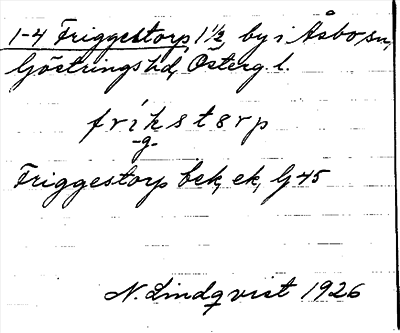 1-4 Friggestorp 1 1/2 by i Åsbo sn,
Göstrings hd, Österg. l.
frikstorp
-g-
Friggestorp bek, ek, G 45
N. Lindqvist 1926